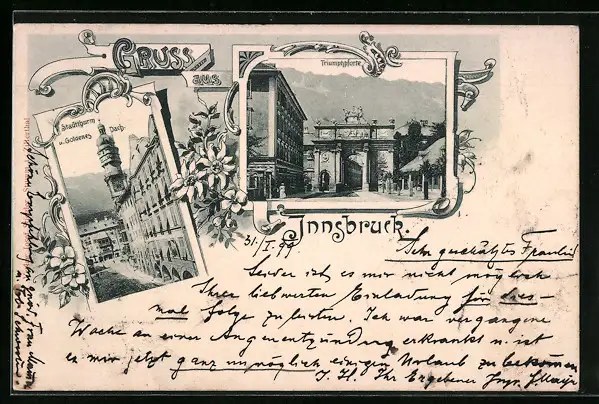 Gruss
aus
Triumphpforte
Stadtthurm
u. Goldenes Dach
Innsbruck.
31./I. 99
Sehr geschätztes Fräulein
Leider ist es mir nicht möglich
Ihrer liebwerten Einladung für dies-
mal folge zu leisten. Ich war vergangene
Woche an einer Augenentzündung erkrankt u. ist
es mir jetzt ganz unmöglich einigen Urlaub zu bekommen
Ihr Ergebener
Schöne Empfehlung